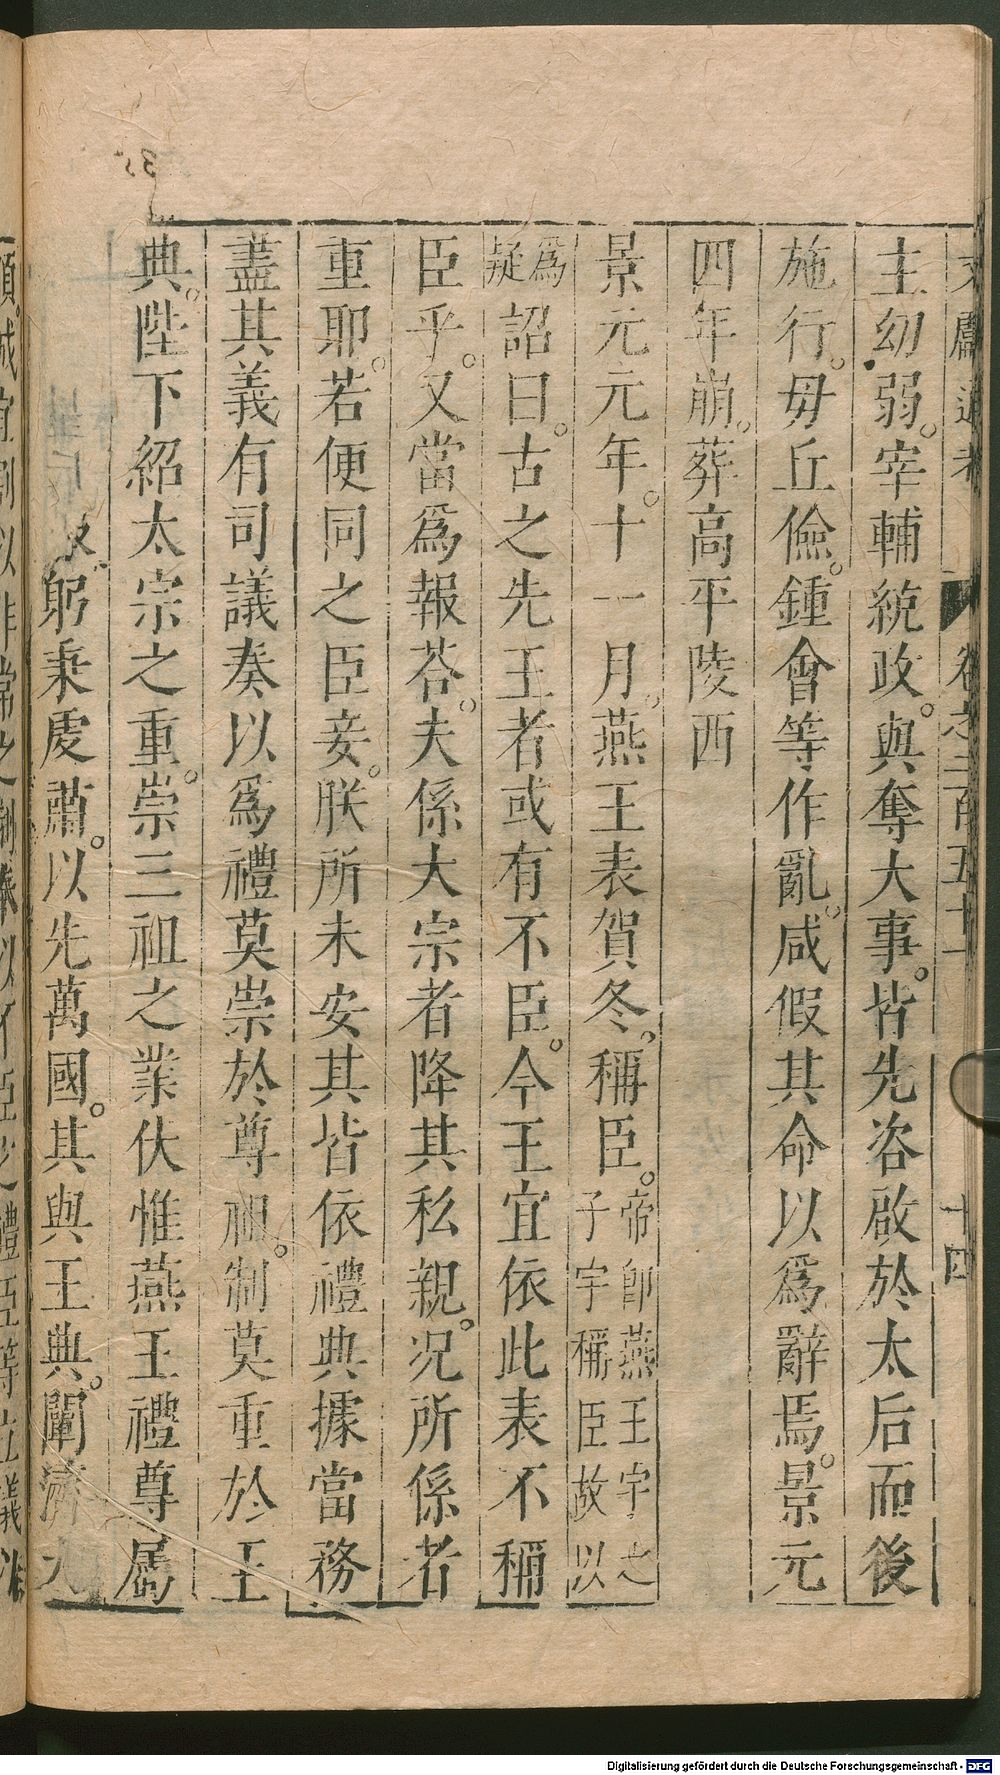 文獻通考 卷之二百五十一 十四
主幼弱。宰輔統政。與奪大事。皆先咨啟於太后而後
施行。毋丘儉。鍾會等作亂。咸假其命以爲辭焉。景元
四年崩。葬高平陵西
景元元年。十一月。燕王表賀冬。稱臣。帝卽燕王宇之子宇稱臣故以
爲疑詔曰。古之先王者或有不臣。今王宜依此表不稱
臣乎。又當爲報荅。夫係大宗者降其私親。况所係者
重耶。若便同之臣妾。朕所未安其皆依禮典據當務
盡其義有司議奏以爲禮莫崇於尊祖。制莫重於王
典。陛下紹太宗之重。崇三祖之業伏惟燕王禮尊屬
躬秉虔肅。以先萬國。其與王典。闡濟大
35
Digitalisierung gefördert durch die Deutsche Forschungsgemeinschaft - DFG